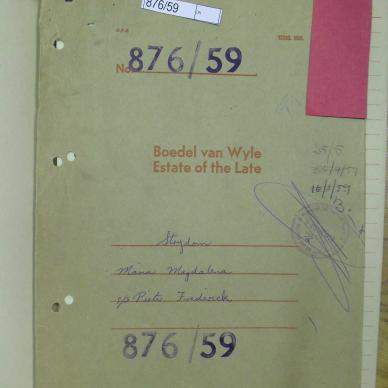 876/59
No. 876/59
Boedel van Wyle
Estate of the Late
Strydom
Maria Magdalena
s/p Pieter Frederick
876/59